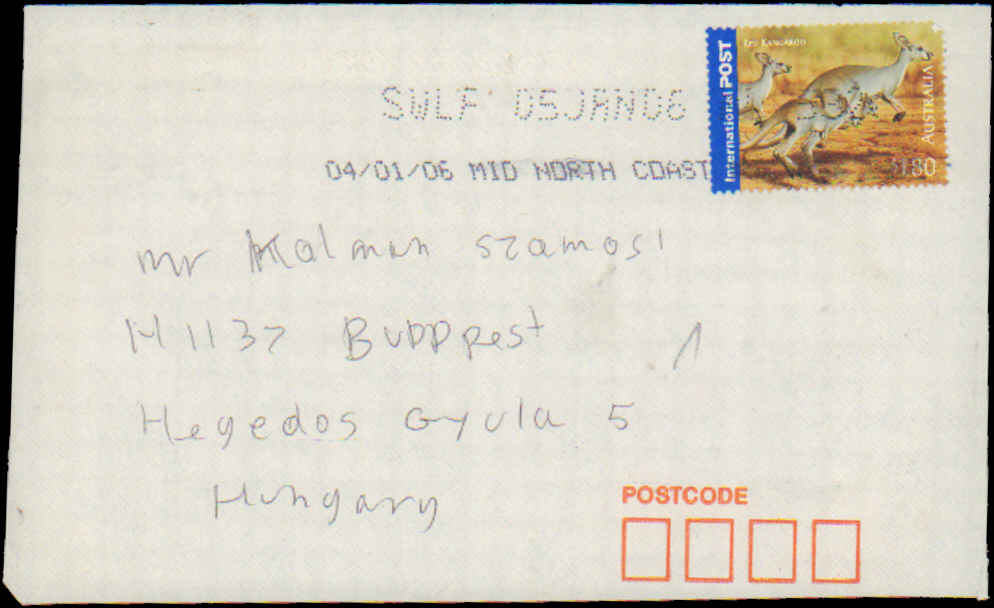 International POST
RED KANGAROO
AUSTRALIA
$1.80
SWLF 05JAN06
04/01/06 MID NORTH COAST
mr Kalman szamosi
H 1137 Budppest
Hegedos Gyula 5
Hungary
POSTCODE